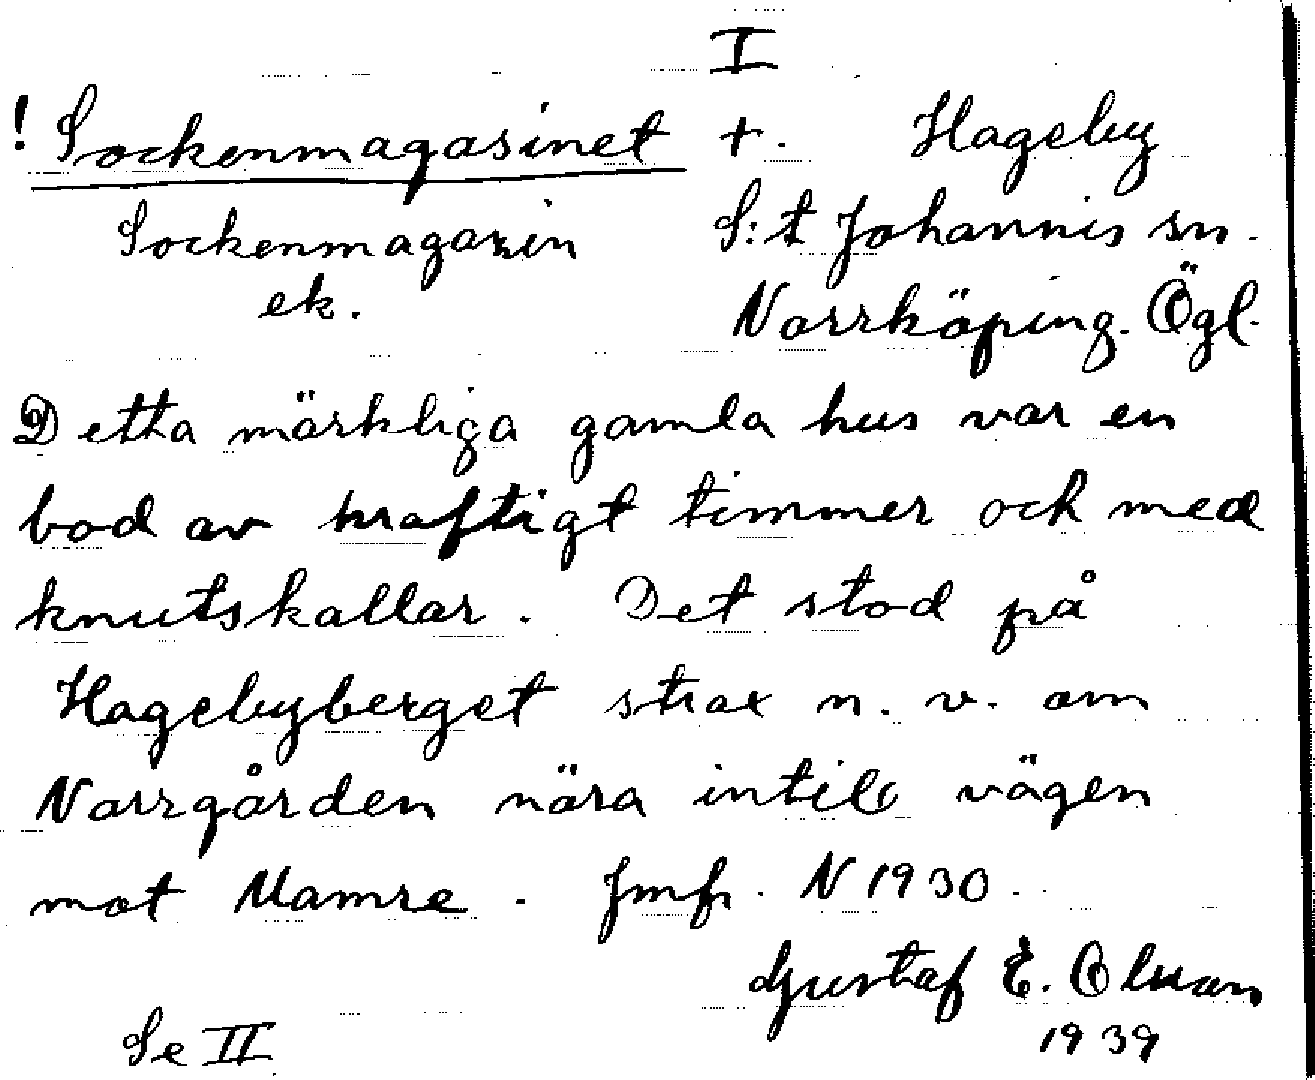 I
! Sockenmagasinet +. Hageby
Sockenmagasin S:t Johannis sn.
ek. Norrköping. Ögl.
Detta märkliga gamla hus var en
bod av kraftigt timmer och med
knutskallar. Det stod på
Hagebyberget strax n. v. om
Norrgården nära intill vägen
mot Mamre. Jmfr. N 1930.
Gustaf E. Olsson
1939
Se II